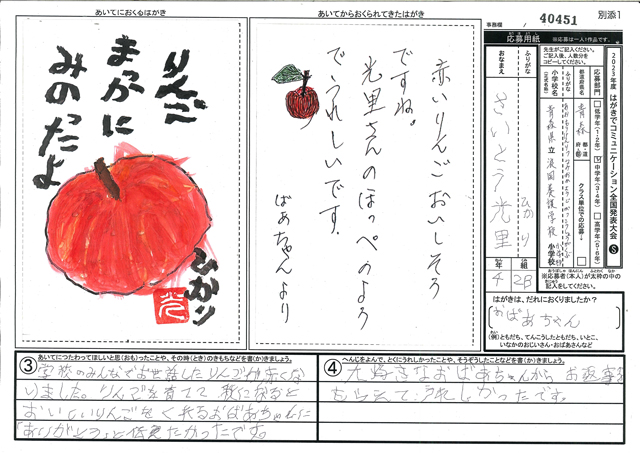 あいてにおくるはがき
りんご
まっかに
みのったよ
ひかり
光
あいてからおくられてきたはがき
赤いりんごおいしそう
ですね。
光里さんのほっぺのよう
で、うれしいです。
ばあちゃんより
事務欄
40451
別添1
応募用紙
※応募は一人1作品です。
先生がご記入ください。
ご記入後、人数分を
コピーしてください。
2023年度 はがきでコミュニケーション全国発表大会
応募部門
低学年(1・2年)
中学年(3・4年)
高学年(5・6年)
都道府県名
青森
クラス単位での応募
ふりがな
小学校名
(正式名称)
青森県立浪岡養護学校
小学校
ふりがな
ひかり
おなまえ
さいとう光里
年
4
組
2B
※応募者(本人)が太枠の中の
記入をしてください。
はがきは、だれにおくりましたか?
おばあちゃん
(例)ともだち、てんこうしたともだち、いとこ、
いなかのおじいさん・おばあさんなど
③
あいてにつたわってほしいと思(おも)ったことや、その時(とき)のきもちなどを書(か)きましょう。
学校のみんなでお世話したりんごが赤くな
りました。りんごを育てて秋になると
おいしいりんごをくれるおばあちゃんに
「ありがとう」と伝えたかったです。
④
へんじをよんで、とくにうれしかったことや、そうぞうしたことなどを書(か)きましょう。
大好きなおばあちゃんから、お返事を
もらえて、うれしかったです。